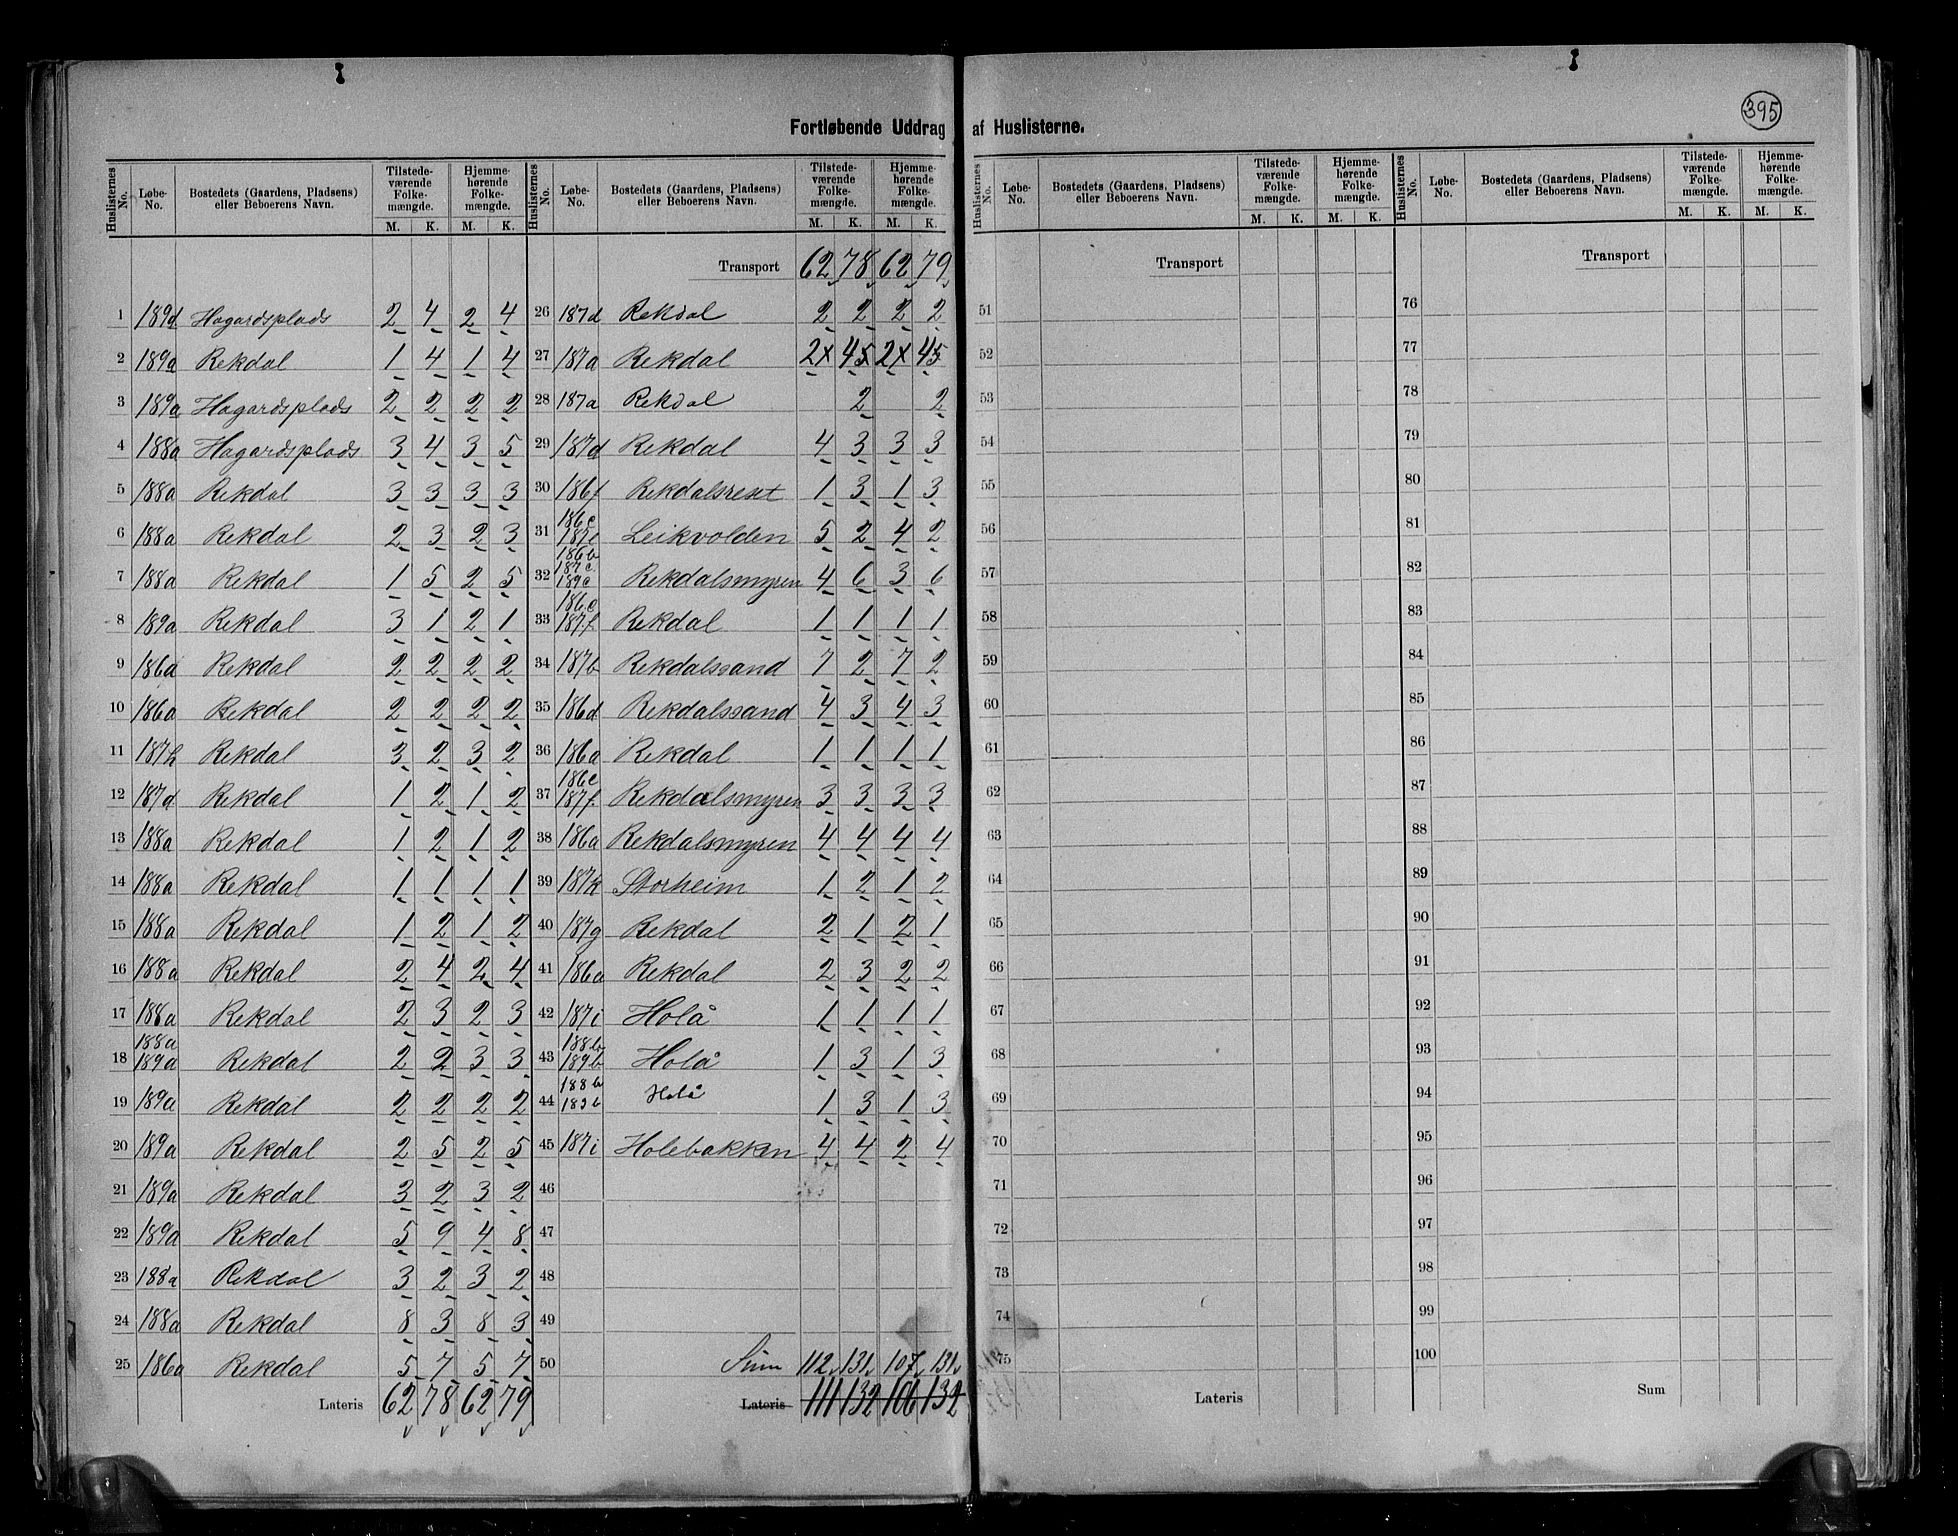 395
Fortløbende Uddrag af Huslisterne.
Huslisternes No. Løbe-No. Bostedets (Gaardens, Pladsens) eller Beboerens Navn. Tilstedeværende Folkemængde. M. K. Hjemmehørende Folkemængde. M. K.
1 189d Hagardsplads 2 4 2 4
2 189a Rekdal 1 4 1 4
3 189a Hagardsplads 2 2 2 2
4 188a Hagardsplads 3 4 3 5
5 188a Rekdal 3 3 3 3
6 188a Rekdal 2 3 2 3
7 188a Rekdal 1 5 2 5
8 189a Rekdal 3 1 2 1
9 186a Rekdal 2 2 2 2
10 186a Rekdal 2 2 2 2
11 187h Rekdal 3 2 3 2
12 187d Rekdal 1 2 1 2
13 188a Rekdal 1 2 1 2
14 188a Rekdal 1 1 1 1
15 188a Rekdal 1 2 1 2
16 188a Rekdal 2 4 2 4
17 188a Rekdal 2 3 2 3
18 188a 189a Rekdal 2 2 3 3
19 189a Rekdal 2 2 2 2
20 189a Rekdal 2 5 2 5
21 189a Rekdal 3 2 3 2
22 189a Rekdal 5 9 4 8
23 188a Rekdal 3 2 3 2
24 188a Rekdal 8 3 8 3
25 186a Rekdal 5 7 5 7
Lateris 62 78 62 79
Huslisternes No. Løbe-No. Bostedets (Gaardens, Pladsens) eller Beboerens Navn. Tilstedeværende Folkemængde. M. K. Hjemmehørende Folkemængde. M. K.
Transport 62 78 62 79
26 187d Rekdal 2 2 2 2
27 187a Rekdal 2 4 2 4
28 187a Rekdal 2 2
29 187d Rekdal 4 3 3 3
30 186f Rekdalsrest 1 3 1 3
31 186c Leikvolden 5 2 4 2
32 186b 187c 189c Rekdalsmyren 4 6 3 6
33 186c 187f Rekdal 1 1 1 1
34 187b Rekdalssand 7 2 7 2
35 186d Rekdalssand 4 3 4 3
36 186a Rekdal 1 1 1 1
37 186c 187f Rekdalsmyren 3 3 3 3
38 186a Rekdalsmyren 4 4 4 4
39 187k Storheim 1 2 1 2
40 187g Rekdal 2 1 2 1
41 186a Rekdal 2 3 2 2
42 187i Holå 1 1 1 1
43 188b 189b Holå 1 3 1 3
44 188b 189b Holå 1 3 1 3
45 187i Holebakken 4 4 2 4
46
47
48
49
50 Sum 112 131 107 131
Lateris 111 132 106 132
Huslisternes No. Løbe-No. Bostedets (Gaardens, Pladsens) eller Beboerens Navn. Tilstedeværende Folkemængde. M. K. Hjemmehørende Folkemængde. M. K.
Transport
51
52
53
54
55
56
57
58
59
60
61
62
63
64
65
66
67
68
69
70
71
72
73
74
75
Lateris
Huslisternes No. Løbe-No. Bostedets (Gaardens, Pladsens) eller Beboerens Navn. Tilstedeværende Folkemængde. M. K. Hjemmehørende Folkemængde. M. K.
Transport
76
77
78
79
80
81
82
83
84
85
86
87
88
89
90
91
92
93
94
95
96
97
98
99
100
Sum